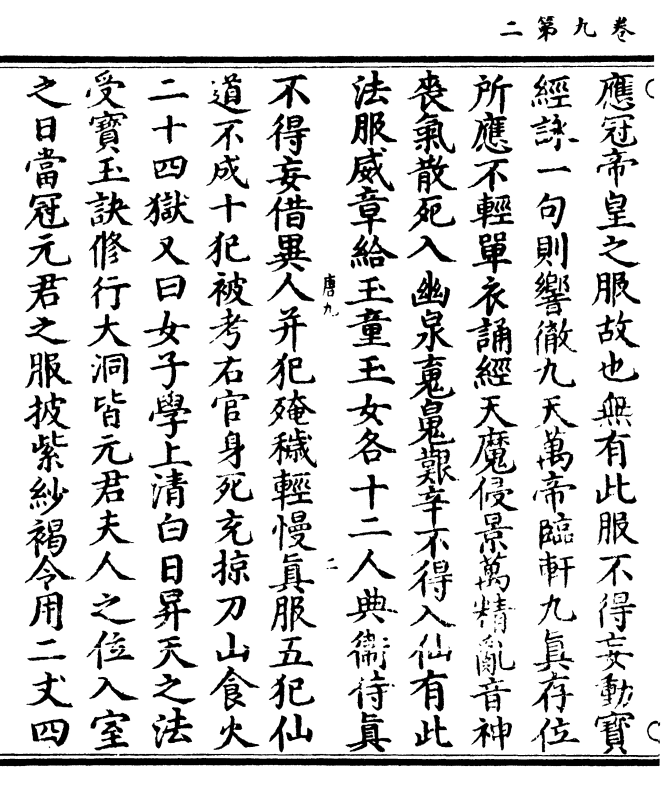 卷九第二
應冠帝皇之服故也無有此服不得妄動寶
經詠一句則響徹九天萬帝臨軒九真存位
所應不輕單衣誦經天魔侵景萬精亂音神
喪氣散死入幽泉䰟䰠艱辛不得入仙有此
法服威章給玉童玉女各十二人典衛侍真
唐九
不得妄借異人并犯殗穢輕慢真服五犯仙
二
道不成十犯被考右官身死充掠刀山食火
二十四獄又曰女子學上清白日昇天之法
受寶玉訣修行大洞皆元君夫人之位入室
之日當冠元君之服披紫紗褐令用二丈四